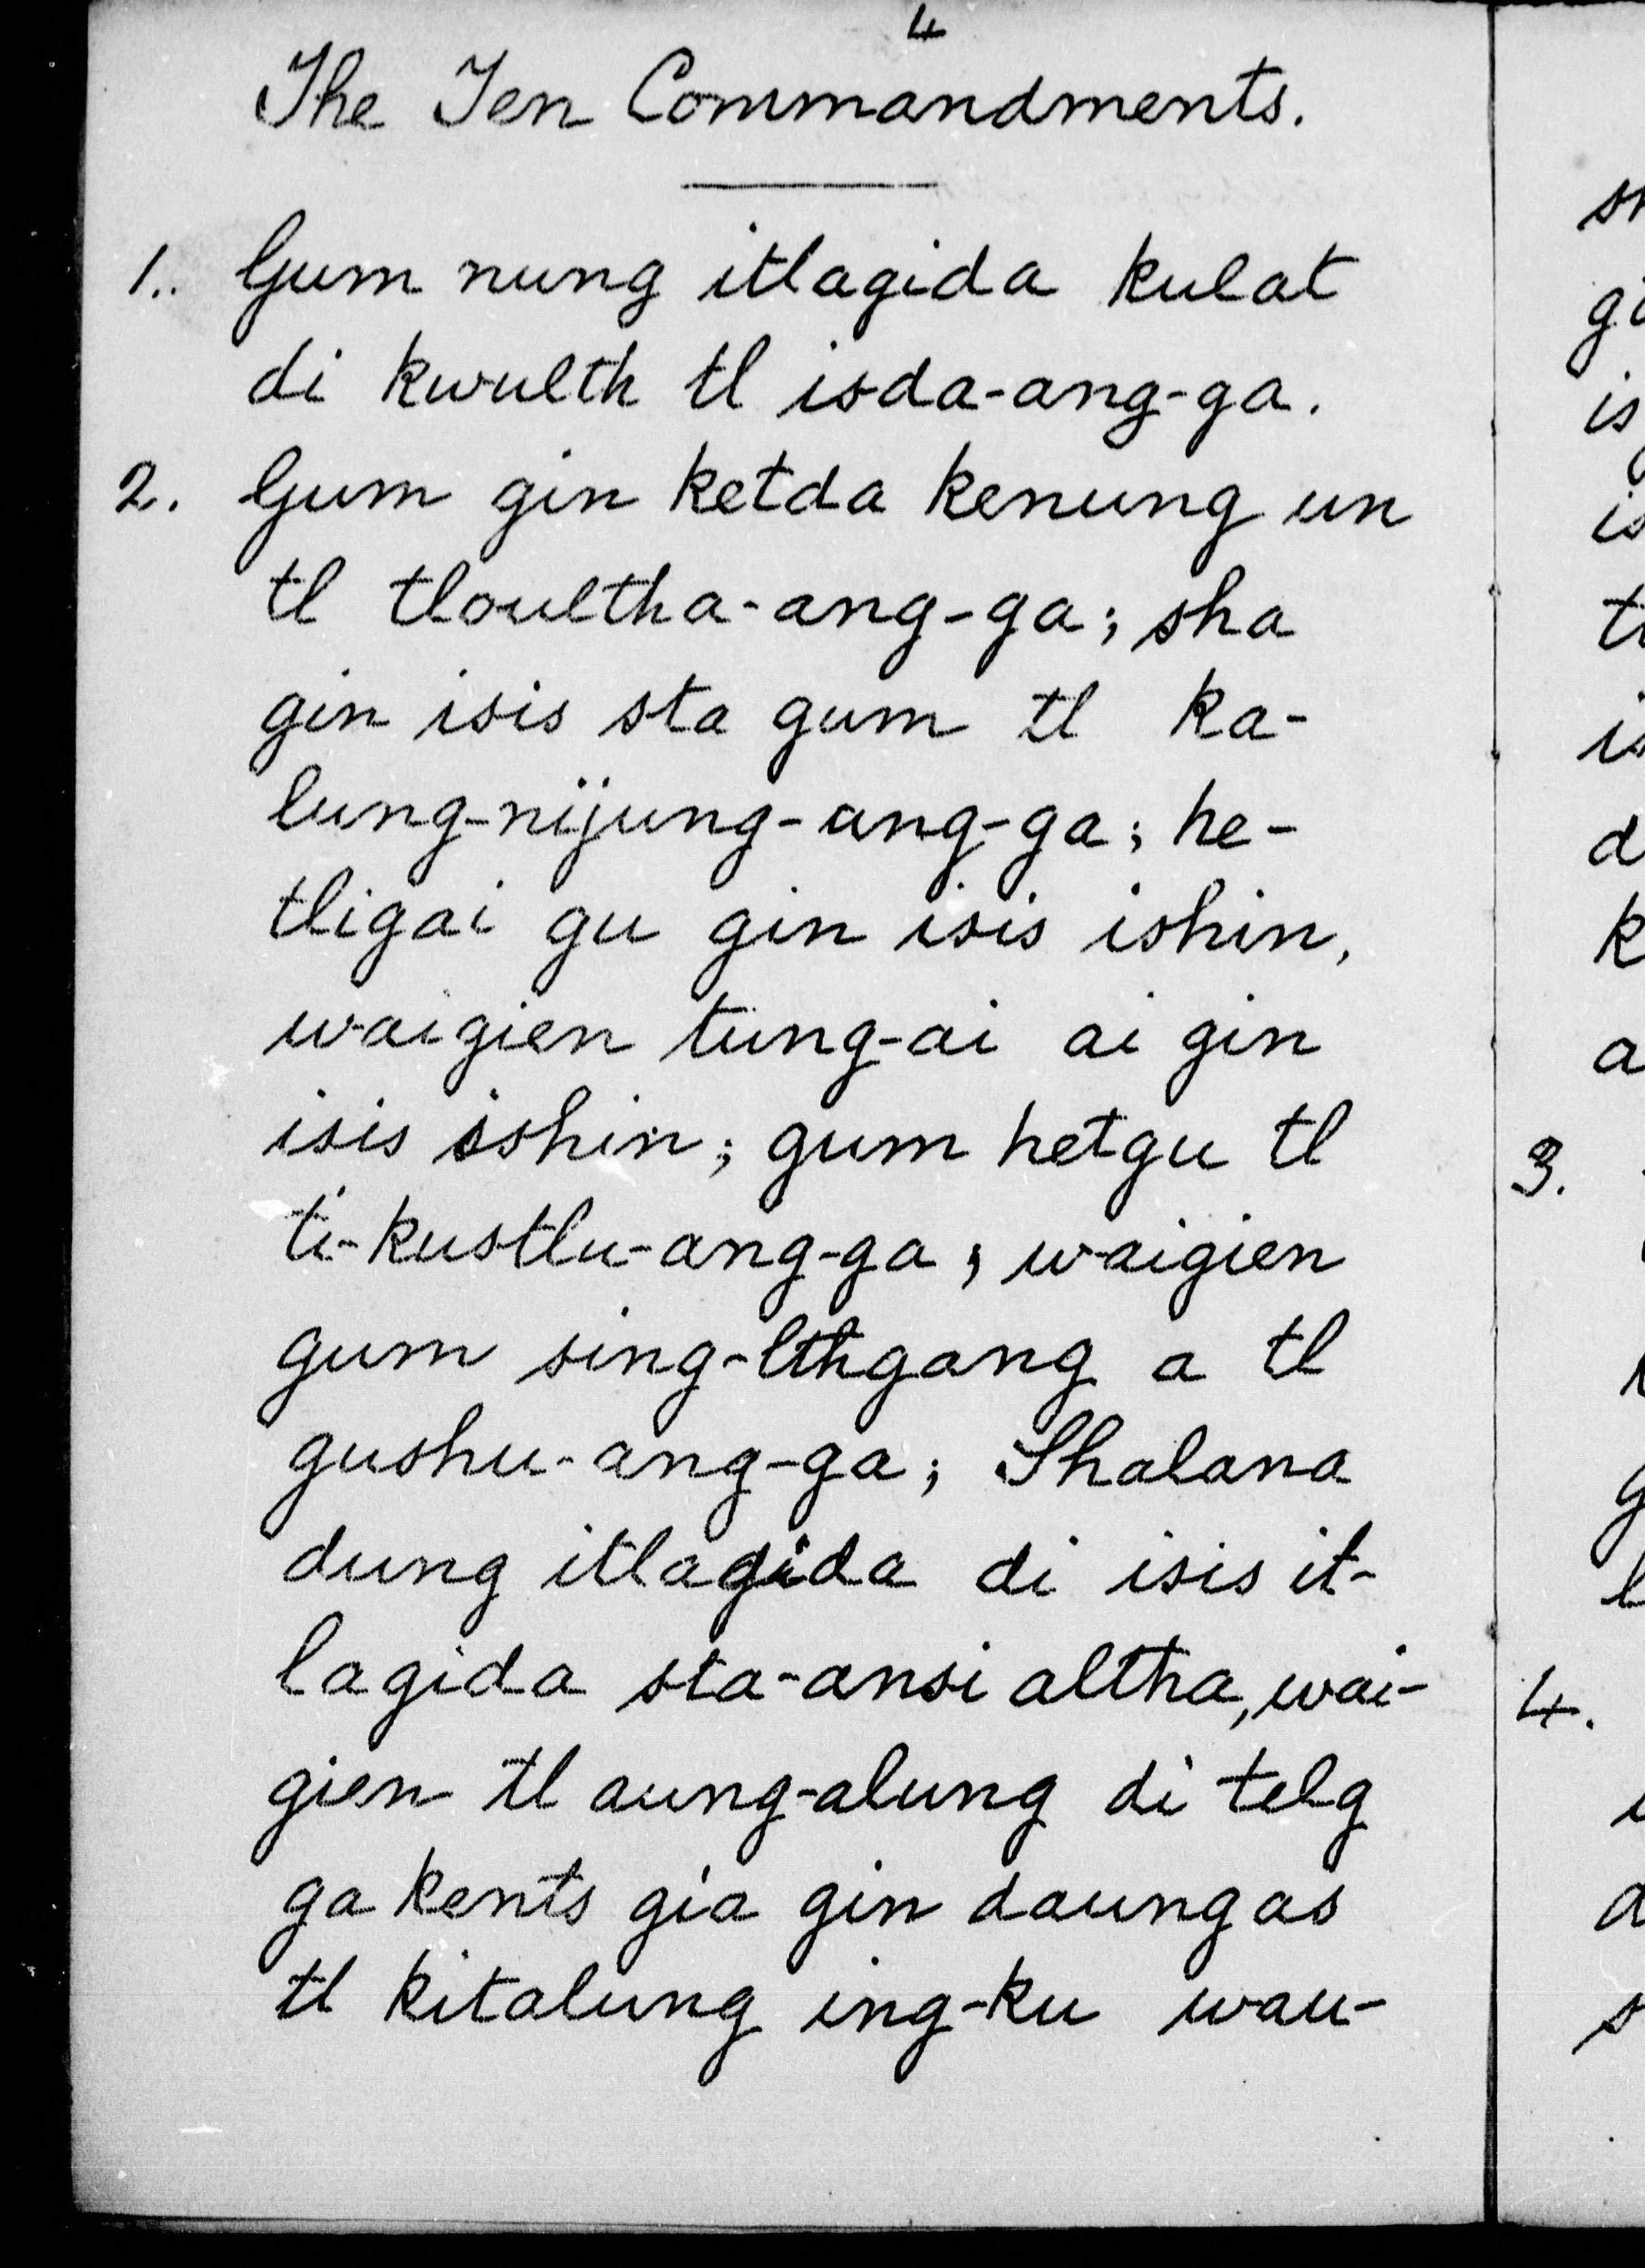 4
The Ten Commandments.
1. Gum nung itlagida kulat
di kwulth tl isda-ang-ga.
2. Gum gin ketda kenung un
tl tloultha-ang-ga; sha
gin isis sta gum tl ka-
lung-nijung-ang-ga; he-
tligai gu gin isis ishin,
waigien tung-ai ai gin
isis ishin; gum hetgu tl
ti-kustlu-ang-ga; waigien
gum sing-lthgang a tl
gushu-ang-ga; Shalana
dung itlagida di isis it-
lagida sta-ansi altha, wai-
gien tl aung-alung di telg
ga kents gia gin daungas
tl kitalung ing-ku wau-
3.
4.